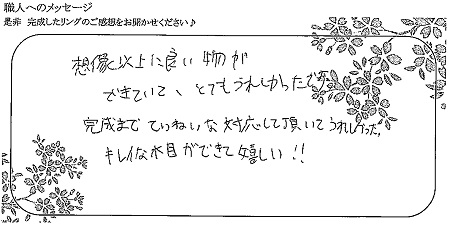 職人へのメッセージ
是非 完成したリングのご感想をお聞かせください♪
想像以上に良い物が
できていて、とてもうれしかったです。
完成まで ていねいな対応して頂いてうれしかった!
キレイな木目ができて嬉しい!!